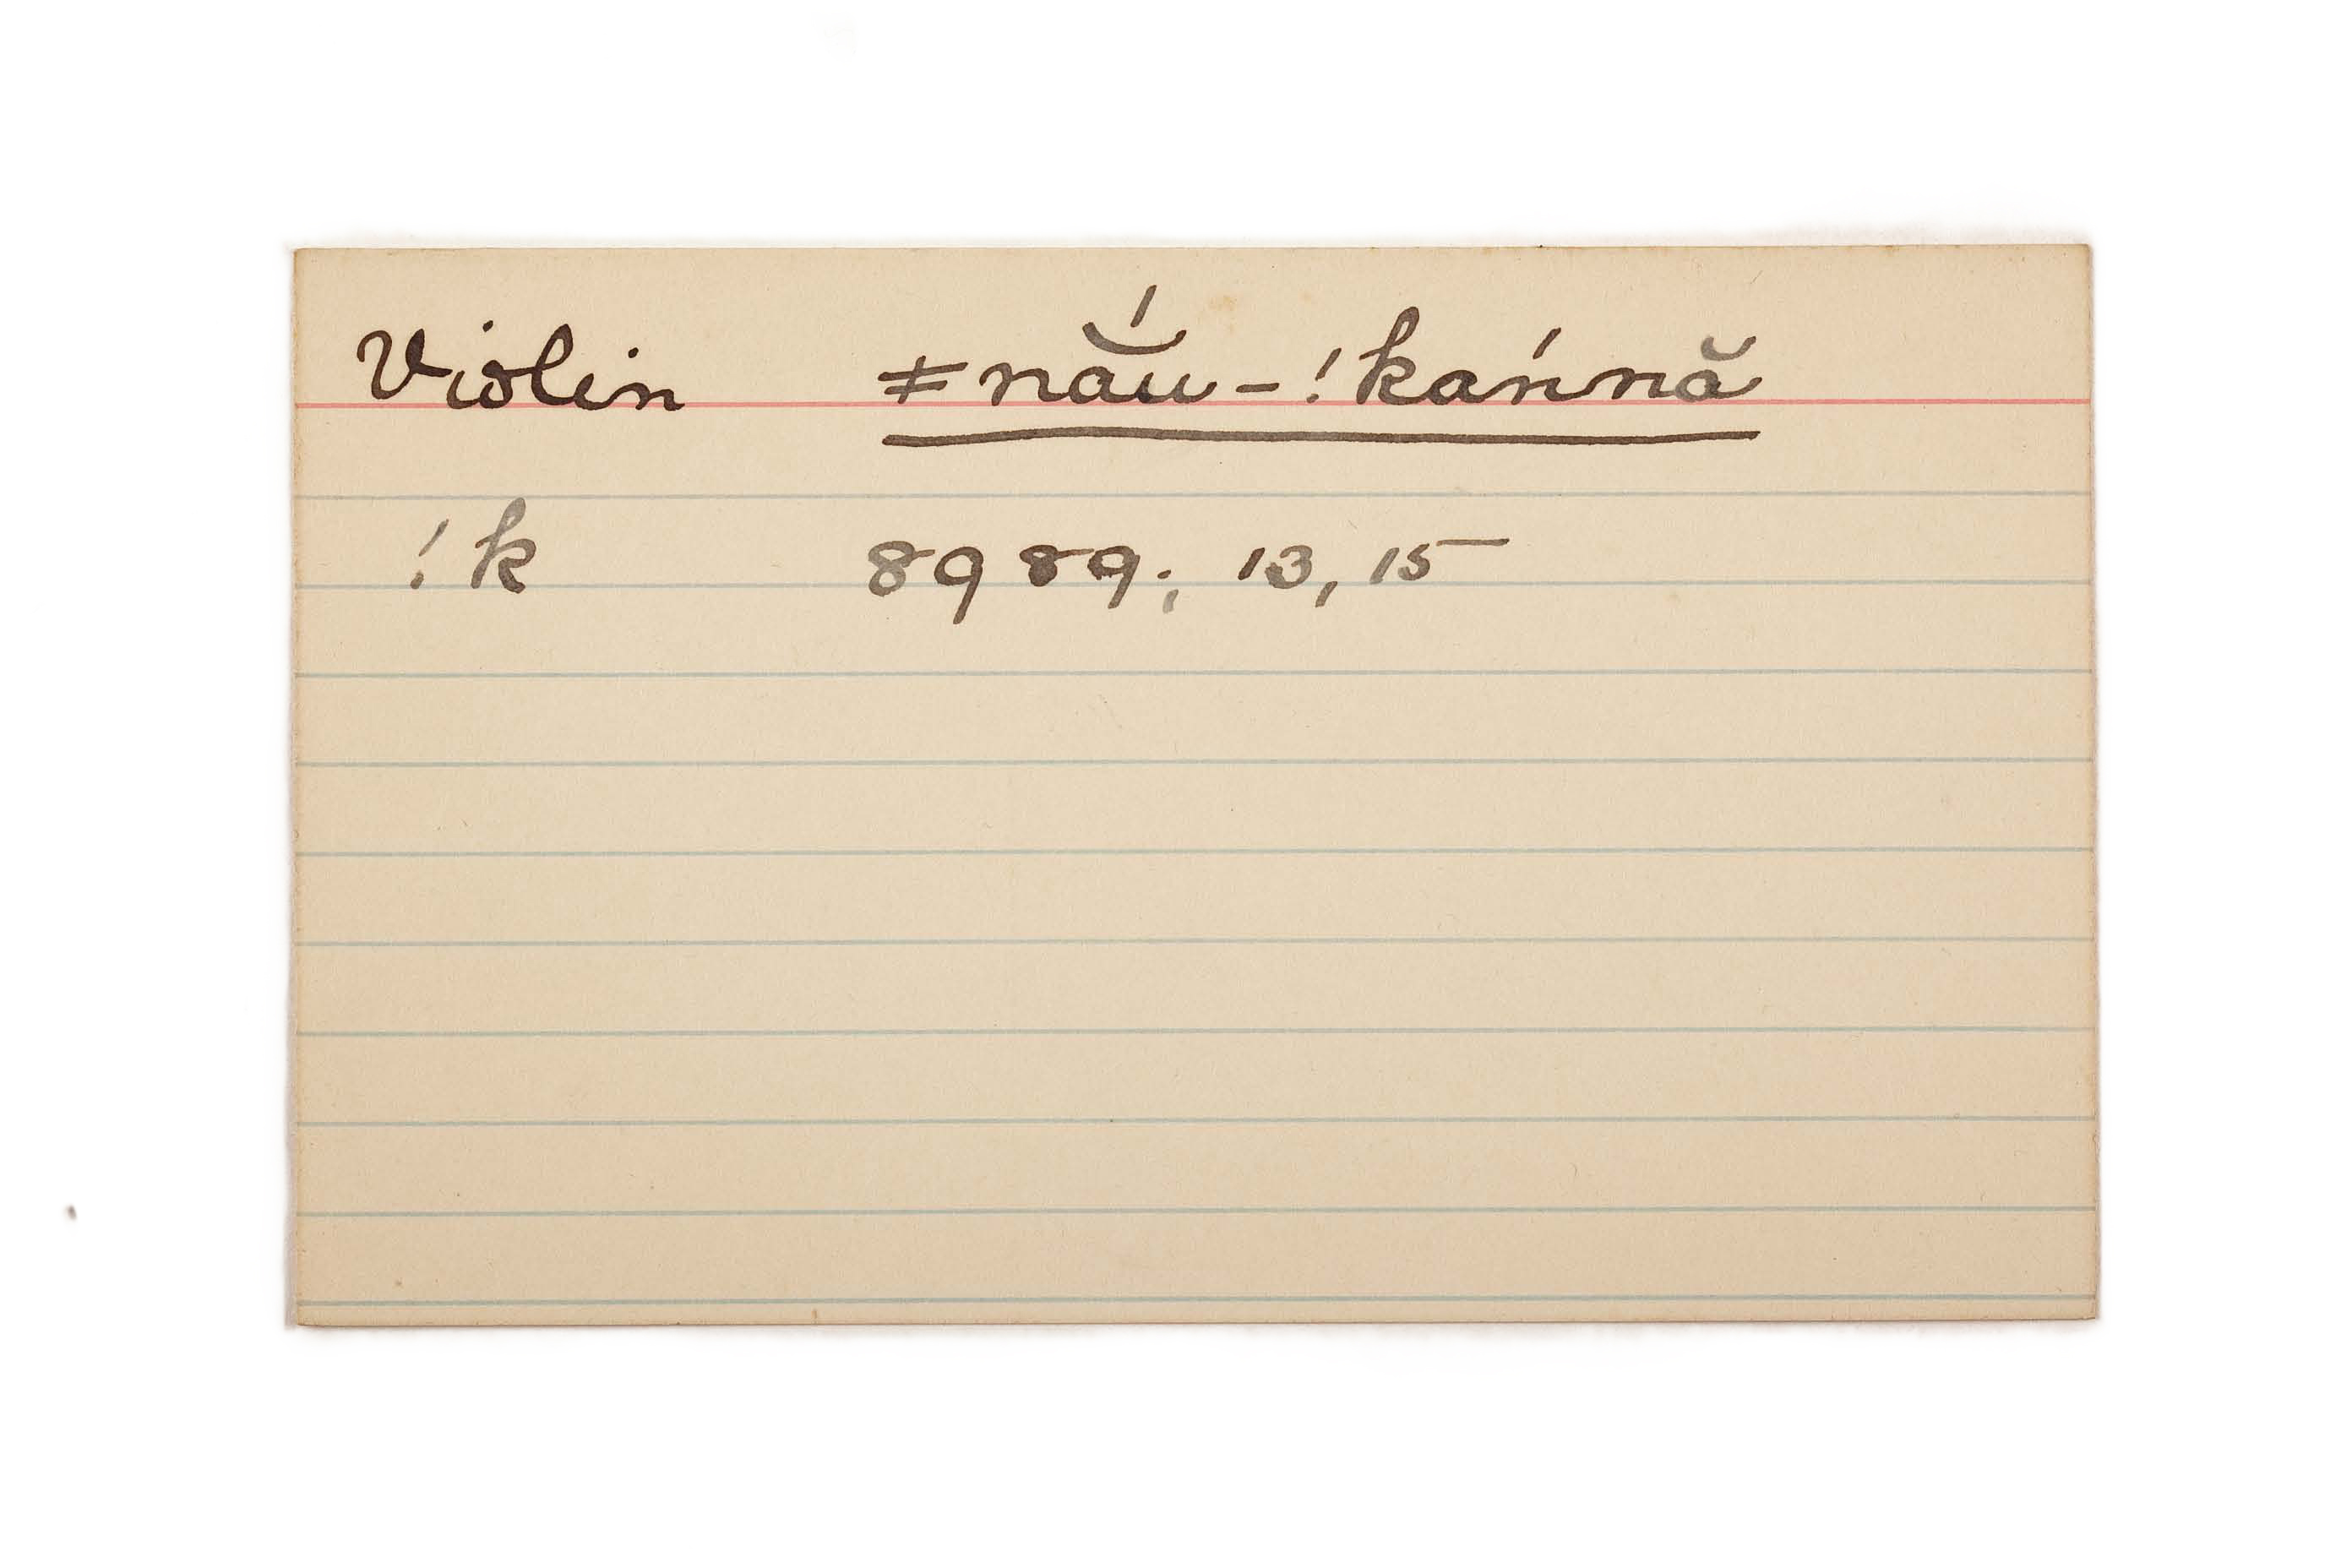 Violin ǂnắu-!kańnă
!k 8989; 13, 15